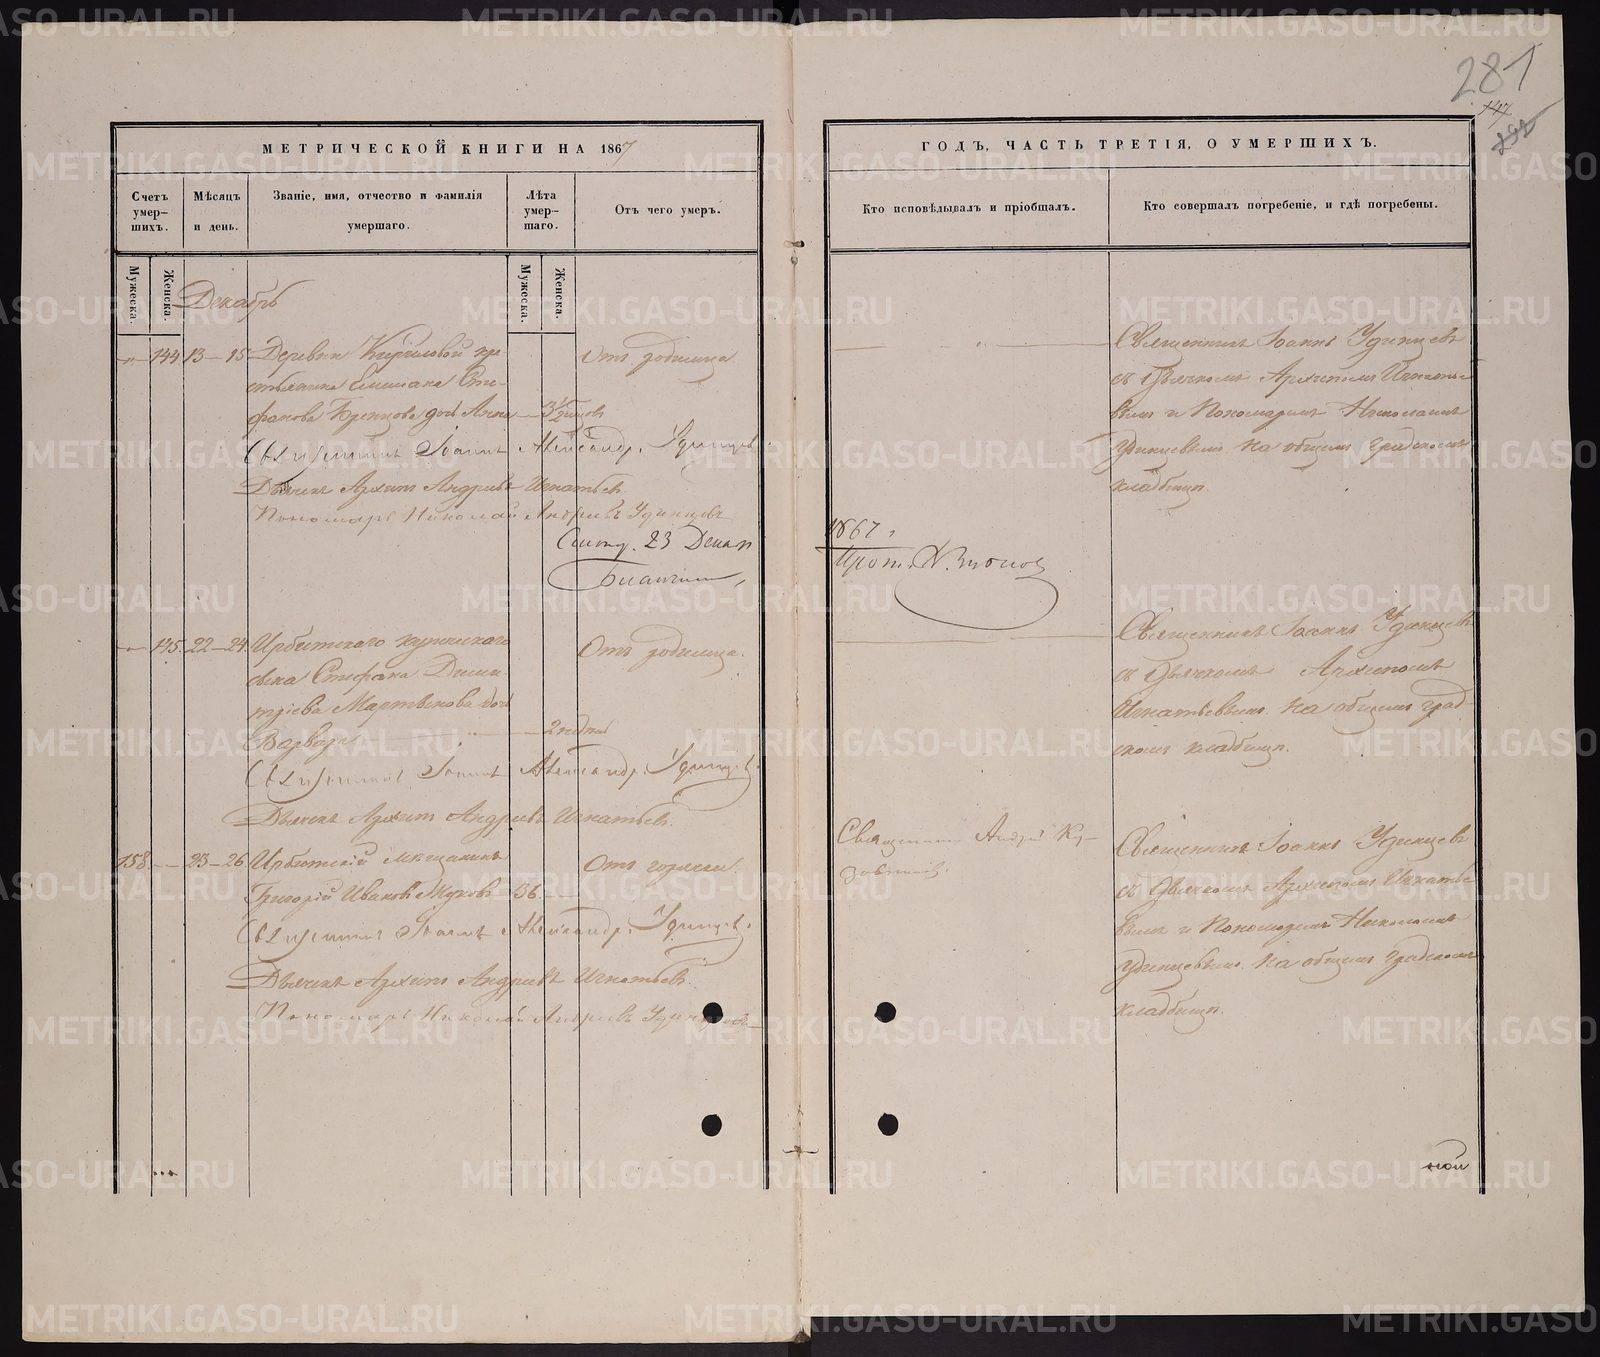 281
292
МЕТРИЧЕСКОЙ КНИГИ НА 1867
ГОДЪ, ЧАСТЬ ТРЕТІЯ, О УМЕРШИХЪ.
Счетъ умер—шихъ.
Мѣсяцъ и день.
Званіе, имя, отчество и фамилія умершаго.
Лѣта умер—шаго.
Отъ чего умеръ.
Кто исповѣдывалъ и пріобщалъ.
Кто совершалъ погребеніе, и гдѣ погребены.
Мужеска.
Женска.
Мужеска.
Женска.
Декабрь
144 13—15 Деревни Кириловой кре-
стьянина Емилiана Сте-
фанова дочь Анна 3½
Отъ родимца
Священникъ Іоаннъ Александр. Удинцевъ.
Дьячекъ Архипъ Андреевъ Игнатьевъ
Пономарь Николай Андреевъ Удинцевъ
23 Декаб
Священникъ Іоаннъ Удинцевъ
съ Дьячкомъ Архипомъ Игнатье
вымъ и Пономаремъ Николаемъ
Удинцевымъ. На общемъ градскомъ
кладбищѣ.
1867 г
Прот.
145 22—24 Ирбитского купеческаго
сына Стефана Дими-
тріева Мартьянова дочь
Варвара 2 недѣли
Отъ родимца.
Священникъ Іоаннъ Александр. Удинцевъ.
Дьячекъ Архипъ Андреевъ Игнатьевъ.
Священникъ Іоаннъ Удинцевъ
съ Дьячкомъ Архипомъ
Игнатьевымъ. На общемъ град-
скомъ кладбищѣ.
158 23—26 Ирбитскій мѣщанинъ
Григорій Ивановъ 36.
Отъ горячки.
Священникъ Іоаннъ Александр. Удинцевъ.
Дьячекъ Архипъ Андреевъ Игнатьевъ.
Пономарь Николай Андреевъ Удинцевъ
Священникъ Андрей
Священникъ Іоаннъ Удинцевъ
съ Дьячкомъ Архипомъ Игнатье
вымъ и Пономаремъ Николаемъ
Удинцевымъ. На общемъ градскомъ
кладбищѣ.
METRIKI.GASO-URAL.RU